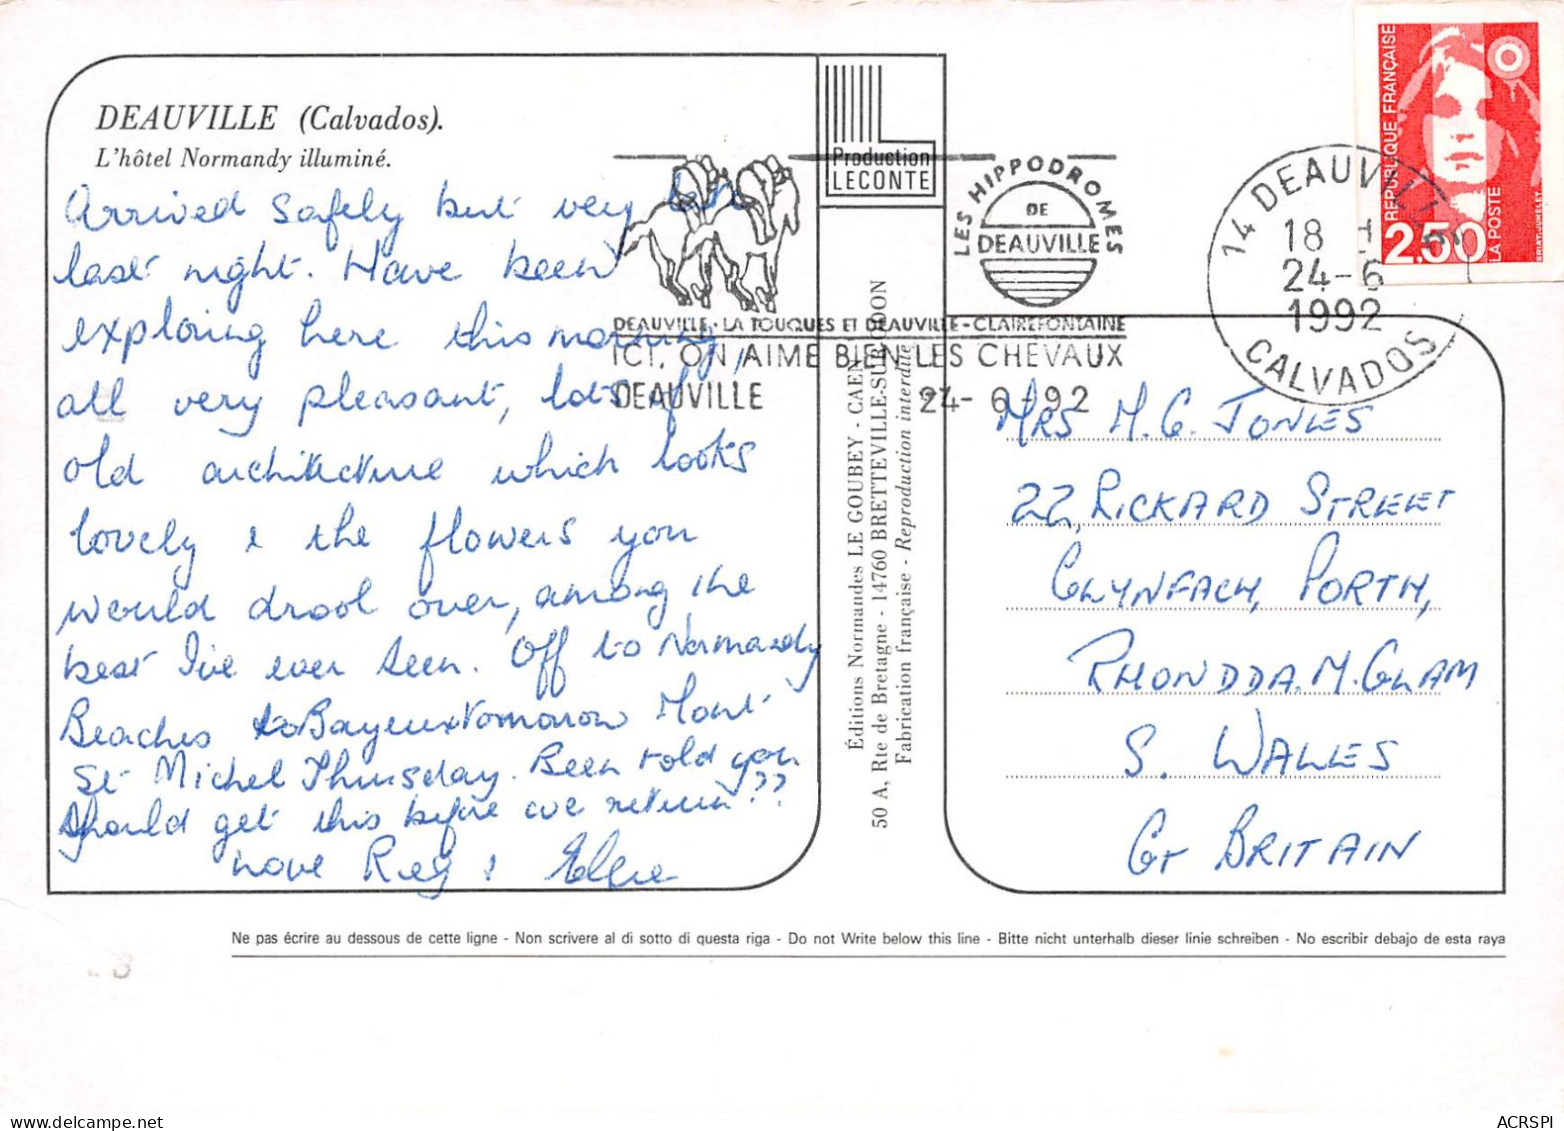 DEAUVILLE (Calvados).
L'hôtel Normandy illuminé.
Arrived safely but very
last night. Have been
exploring here this morning,
all very pleasant, lots of
old architecture which looks
lovely & the flowers you
would drool over, among the
best I've ever seen. Off to Normandy
Beaches to Bayeux Tomorrow Mont
St Michel Thursday. Been told you
should get this before we return??
Love Reg &
Production
LECONTE
LES HIPPODROMES
DE
DEAUVILLE
DEAUVILLE - LA TOUQUES ET DEAUVILLE - CLAIREFONTAINE
ICI, ON AIME BIEN LES CHEVAUX
DEAUVILLE 24-6-92
Éditions Normandes LE GOUBEY - CAEN
50 A, Rte de Bretagne - 14760 BRETTEVILLE-SUR-ODON
Fabrication française - Reproduction interdite
14 DEAUVILLE
18 H
24-6
1992
CALVADOS
REPUBLIQUE FRANÇAISE
2,50
LA POSTE
MRS M.G. JONES
22, RICKARD STREET
GLYNFACH, PORTH,
RHONDDA. M. GLAM
S. WALES
GT BRITAIN
Ne pas écrire au dessous de cette ligne - Non scrivere al di sotto di questa riga - Do not Write below this line - Bitte nicht unterhalb dieser linie schreiben - No escribir debajo de esta raya
ACRSPI